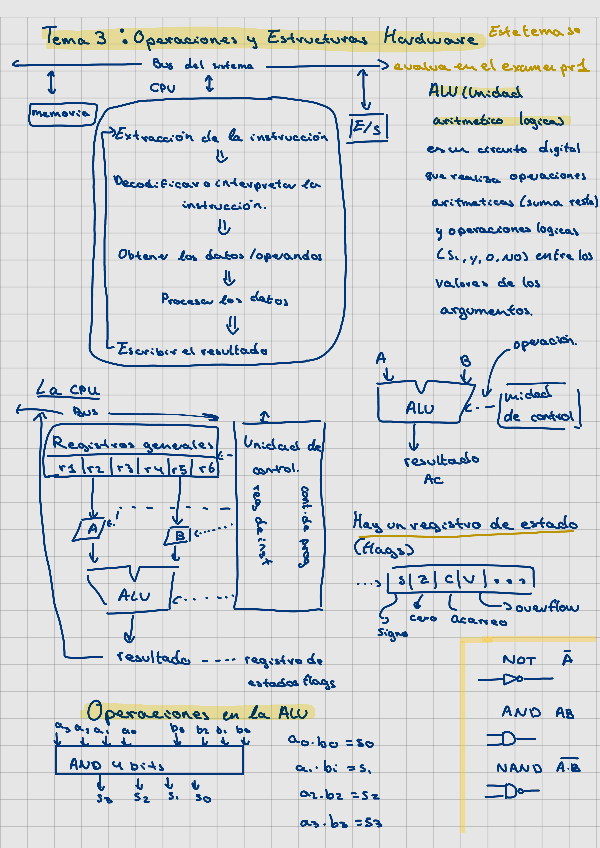 Tema 3: Operaciones y Estructuras Hardware
Este tema se
evalua en el examen pr1
Bus del sistema
CPU
memoria
E/S
Extracción de la instrucción
Decodificar o interpretar la
instrucción.
Obtener los datos/operandos
Procesar los datos
Escribir el resultado
ALU (Unidad
aritmetico logica)
es un circuito digital
que realiza operaciones
aritmeticas (suma resta)
y operaciones logicas
(si, y, o, no) entre los
valores de los
argumentos.
operación.
A B
ALU
unidad
de control
resultado
AC
La CPU
Bus
Registros generales
r1 | r2 | r3 | r4 | r5 | r6
Unidad de
control.
reg de inst
cont. de prog
A
B
ALU
resultado ---- registro de
estados flags
Hay un registro de estado
(flags)
S | Z | C | V | ...
signo
cero
acarreo
overflow
Operaciones en la ALU
a3 a2 a1 a0 b0 b2 b1 b0
AND 4 bits
S3 S2 S1 S0
a0·b0 = S0
a1·b1 = S1
a2·b2 = S2
a3·b3 = S3
NOT A̅
AND AB
NAND A̅·̅B̅